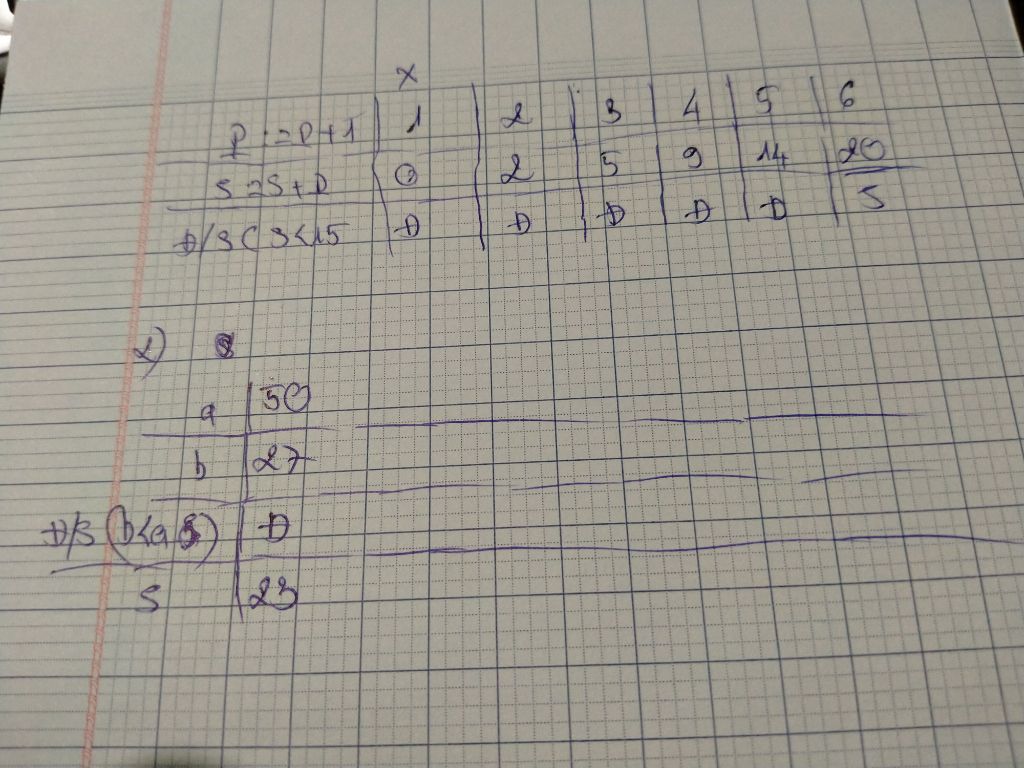 x
P := P+1 | 1 | 2 | 3 | 4 | 5 | 6
S = S+P | 0 | 2 | 5 | 9 | 14 | 20
D/S ( S<15 | D | D | D | D | D | S
2)
a | 50
b | 27
D/S (b<a) | D
S | 23